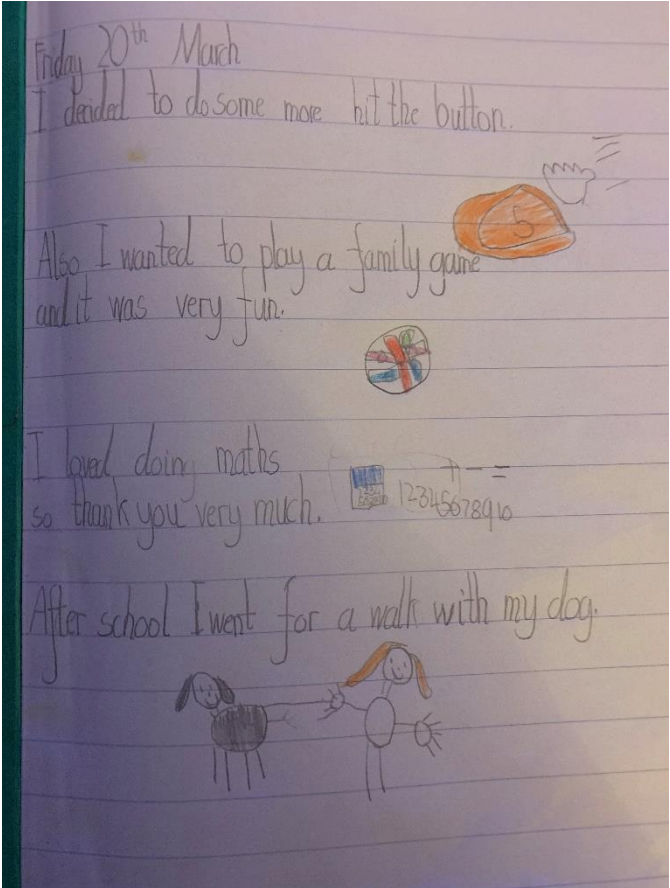 Friday 20th March
I decided to do some more hit the button.
5
Also I wanted to play a family game
and it was very fun.
I loved doing maths
+ - =
so thank you very much.
12345678910
After school I went for a walk with my dog.